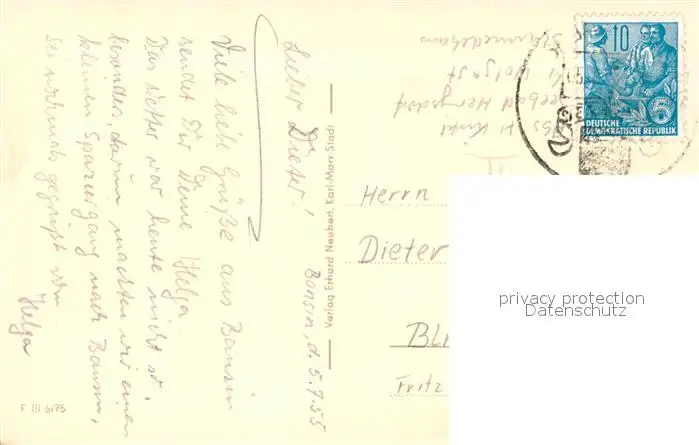 Bansin, d. 5.7.55
Lieber Dieter!
Viele liebe Grüße aus Bansin
sendet Dir Deine Helga
Das Wetter war heute nicht so
besonders, darum machten wir einen
kleinen Spaziergang nach Bansin,
Sei nochmals gegrüßt von
Helga
F III 6/75
Verlag Erhard Neubert, Karl-Marx-Stadt
Seebad
Wolgast
10
5
DEUTSCHE
DEMOKRATISCHE REPUBLIK
Herrn
Dieter
Fritz
privacy protection
Datenschutz